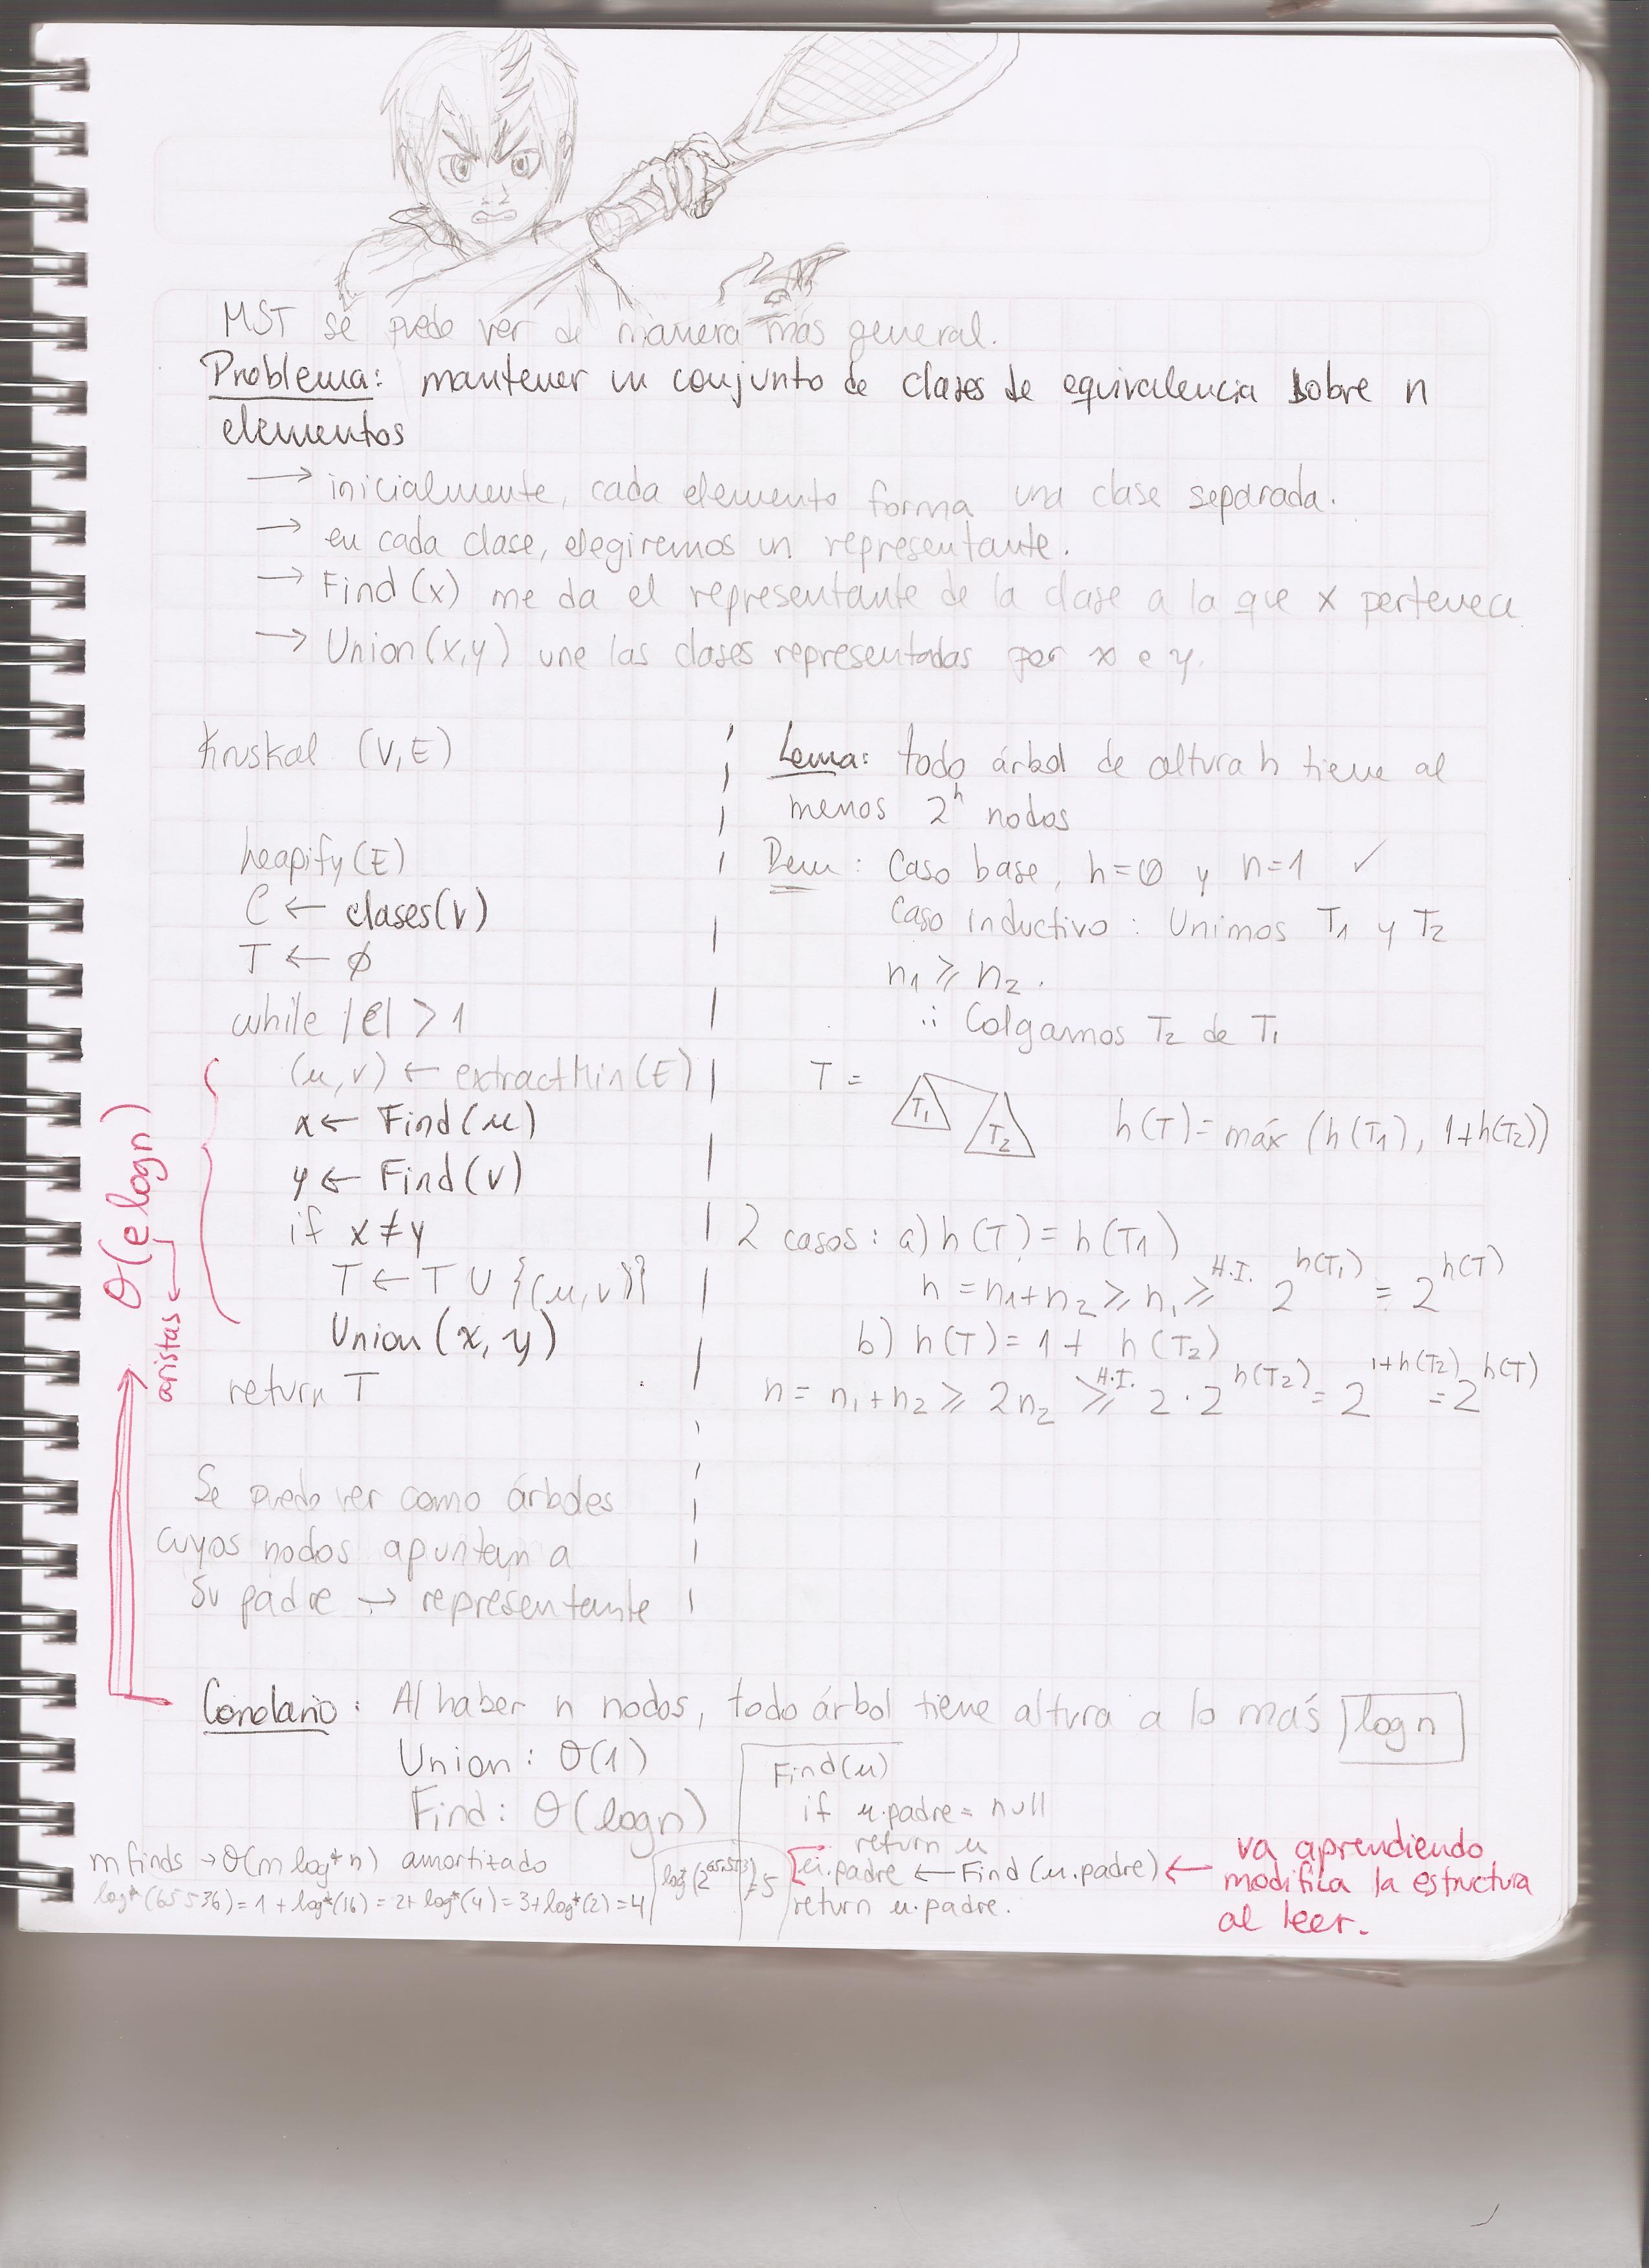 MST se puede ver de manera más general.
Problema: mantener un conjunto de clases de equivalencia sobre n
elementos
→ inicialmente, cada elemento forma una clase separada.
→ en cada clase, elegiremos un representante.
→ Find(x) me da el representante de la clase a la que x pertenece
→ Union(x,y) une las clases representadas por x e y.
Kruskal (V,E)
heapify(E)
C ← clases(V)
T ← ∅
while |C| > 1
(u,v) ← extractMin(E)
x ← Find(u)
y ← Find(v)
if x ≠ y
T ← T ∪ {(u,v)}
Union(x, y)
return T
θ(e logn)
aristas
Se puede ver como árboles
cuyos nodos apuntan a
su padre → representante
Lema: todo árbol de altura h tiene al
menos 2^h nodos
Dem: Caso base, h=0 y n=1 ✓
Caso inductivo: Unimos T1 y T2
n1 ≥ n2.
∴ Colgamos T2 de T1
T =
T1
T2
h(T) = máx (h(T1), 1+h(T2))
2 casos: a) h(T) = h(T1)
n = n1+n2 ≥ n1 ≥^H.I. 2^h(T1) = 2^h(T)
b) h(T) = 1 + h(T2)
n = n1+n2 ≥ 2n2 ≥^H.I. 2·2^h(T2) = 2^1+h(T2) = 2^h(T)
Corolario: Al haber n nodos, todo árbol tiene altura a lo más log n
Union: θ(1)
Find: θ(logn)
m finds → θ(m log* n) amortizado
log*(65536) = 1 + log*(16) = 2 + log*(4) = 3 + log*(2) = 4
= 5
Find(u)
if u.padre = null
return u
u.padre ← Find(u.padre) ←
return u.padre.
va aprendiendo
modifica la estructura
al leer.